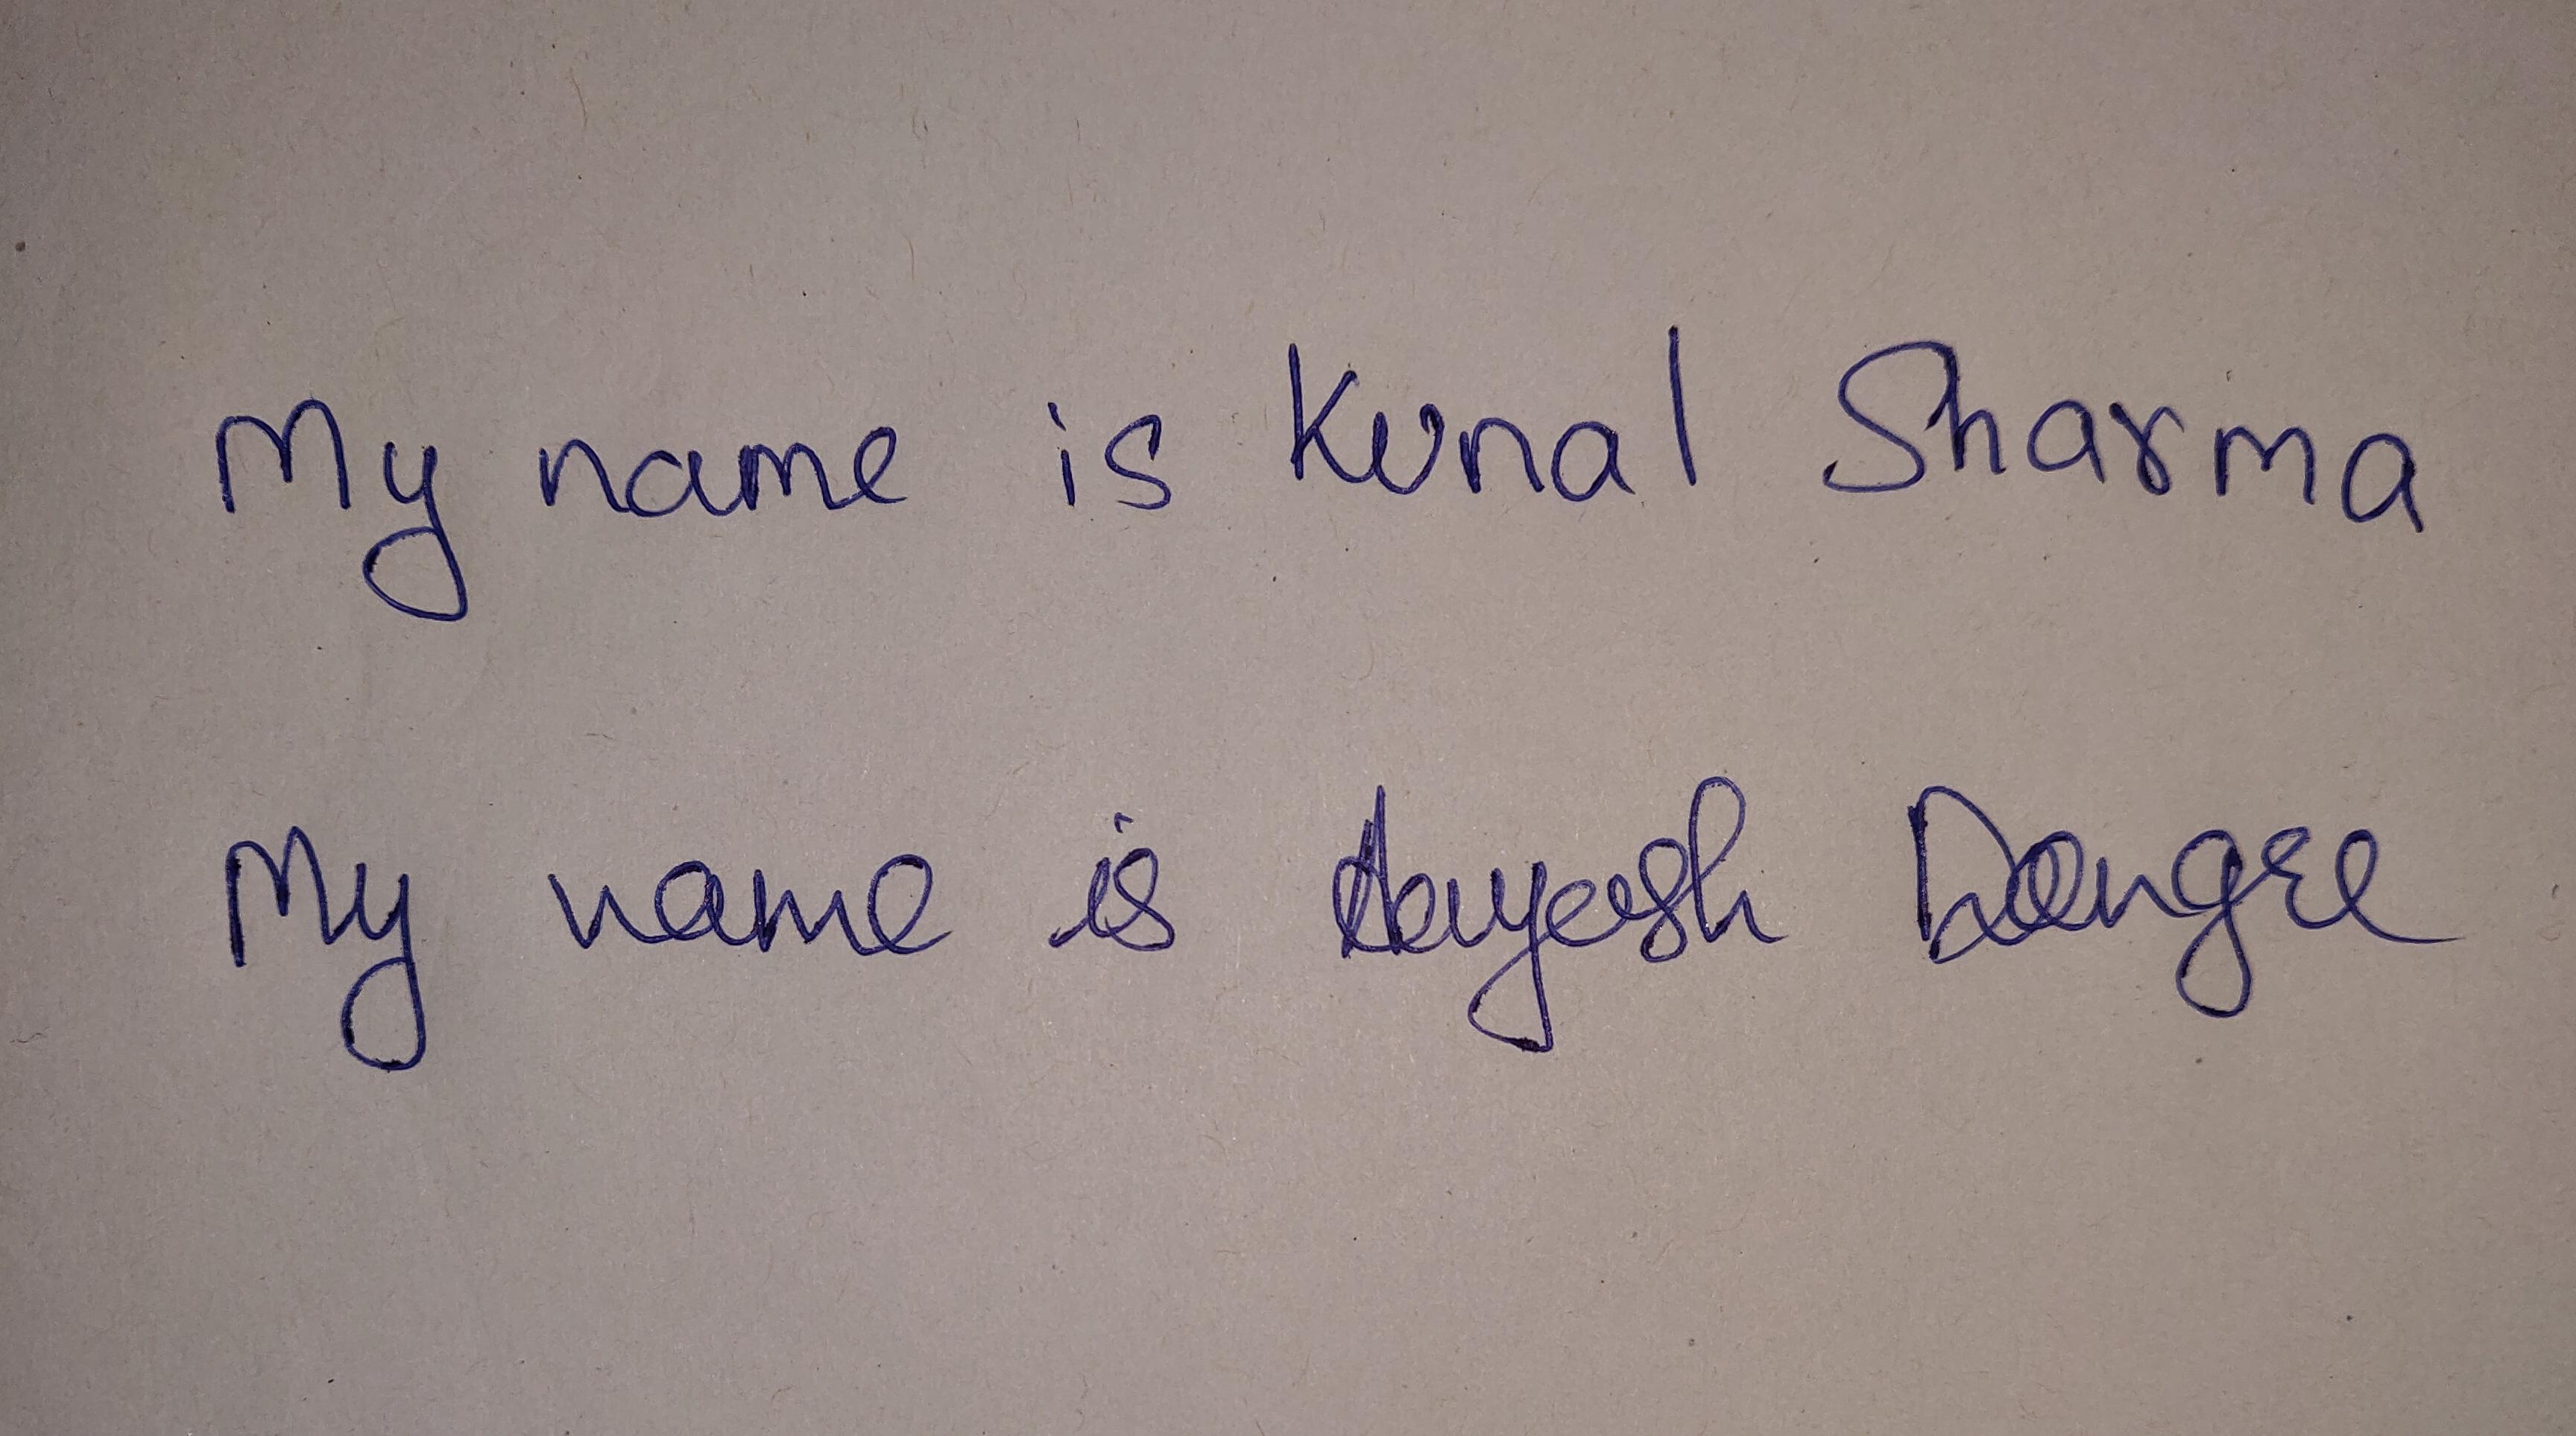 My name is Kunal Sharma
My name is Dongre